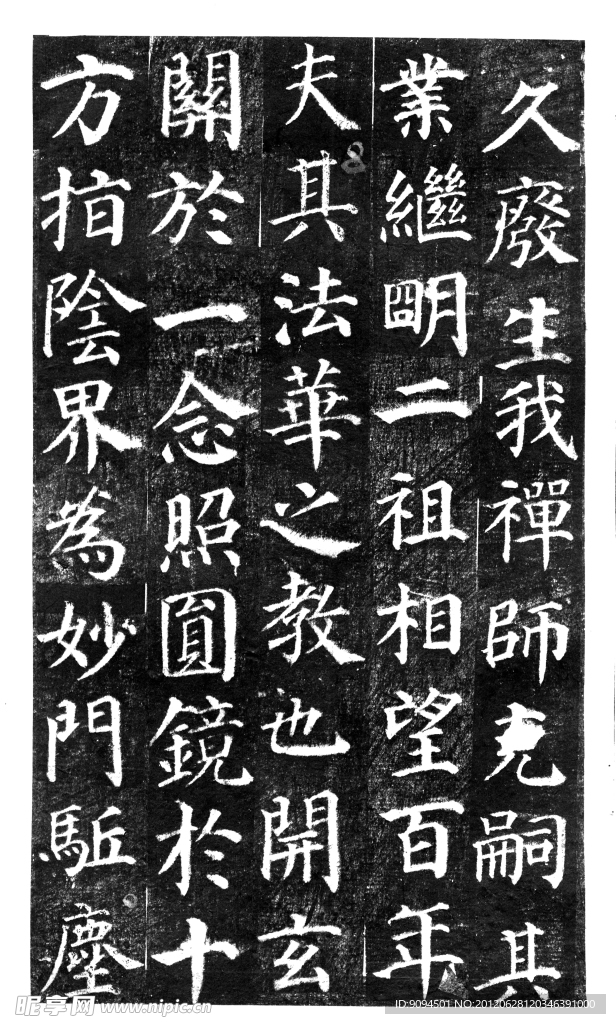 久廢生我禪師克嗣其
業繼明二祖相望百年
夫其法華之教也開玄
關於一念照圓鏡於十
方指陰界為妙門駈塵
昵享网 www.nipic.cn
ID:9094501 NO:20120628120346391000